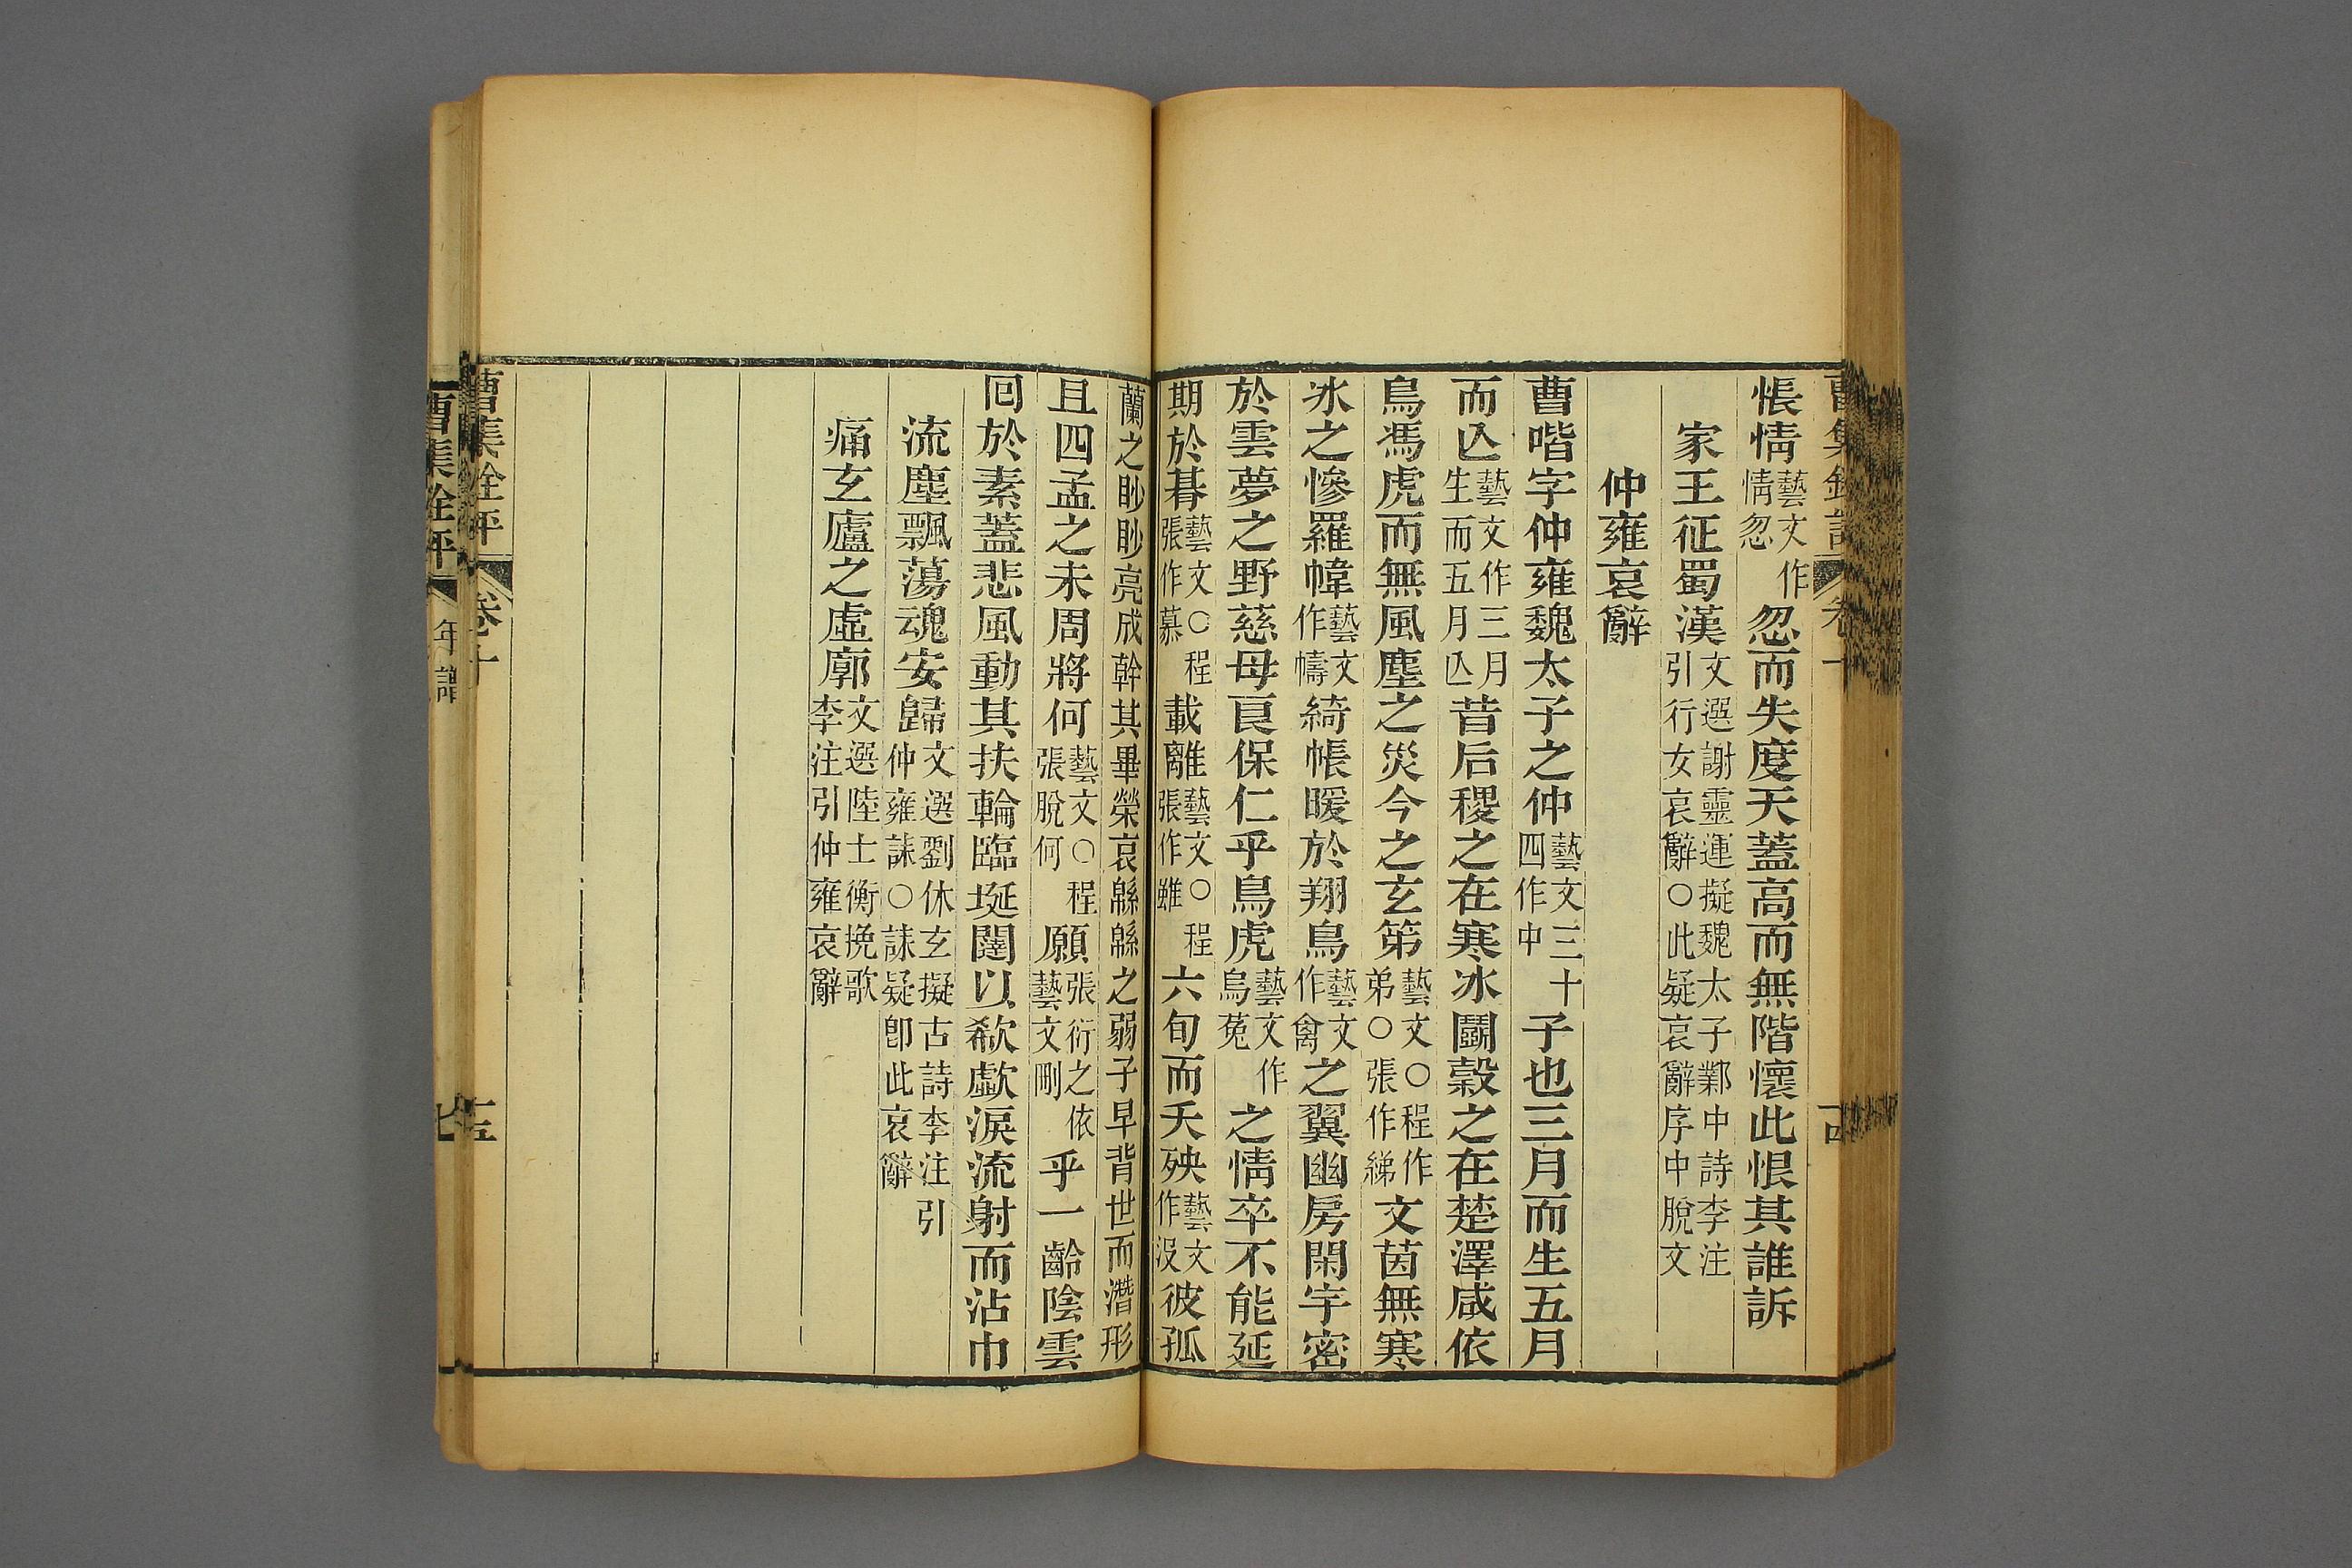 悵情藝文作情忽忽而失度天蓋高而無階懷此恨其誰訴
家王征蜀漢文選謝靈運擬魏太子鄴中詩李注引行女哀辭○此疑哀辭序中脫文
仲雍哀辭
曹喈字仲雍魏太子之仲藝文三十四作中子也三月而生五月
而亾藝文作三月生而五月亾昔后稷之在寒冰鬭榖之在楚澤咸依
鳥馮虎而無風塵之災今之玄笫藝文○程作弟○張作綈文茵無寒
冰之慘羅幃藝文作幬綺帳暖於翔鳥藝文作禽之翼幽房閑宇密
於雲夢之野慈母良保仁乎鳥虎藝文作烏菟之情卒不能延
期於朞藝文○程張作慕載離藝文○程張作雖六旬而夭殃藝文作没彼孤
蘭之眇眇亮成幹其畢榮哀緜緜之弱子早背世而潛形
且四孟之未周將何藝文○程張脫何願張衍之依藝文刪乎一齡陰雲
回於素蓋悲風動其扶輪臨埏闥以欷歔淚流射而沾巾
流塵飄蕩魂安歸文選劉休玄擬古詩李注引仲雍誄○誄疑卽此哀辭
痛玄廬之虛廓文選陸士衡挽歌李注引仲雍哀辭
曹集銓評
卷十
曹集銓評
年譜